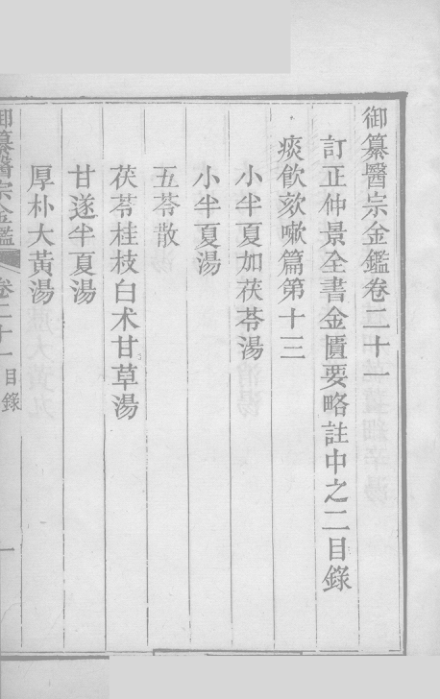 御纂醫宗金鑑卷二十一
訂正仲景全書金匱要略註中之二目錄
痰飲欬嗽篇第十三
小半夏加茯苓湯
小半夏湯
五苓散
茯苓桂枝白术甘草湯
甘遂半夏湯
厚朴大黃湯
御纂醫宗金鑑 卷二十一 目錄 一